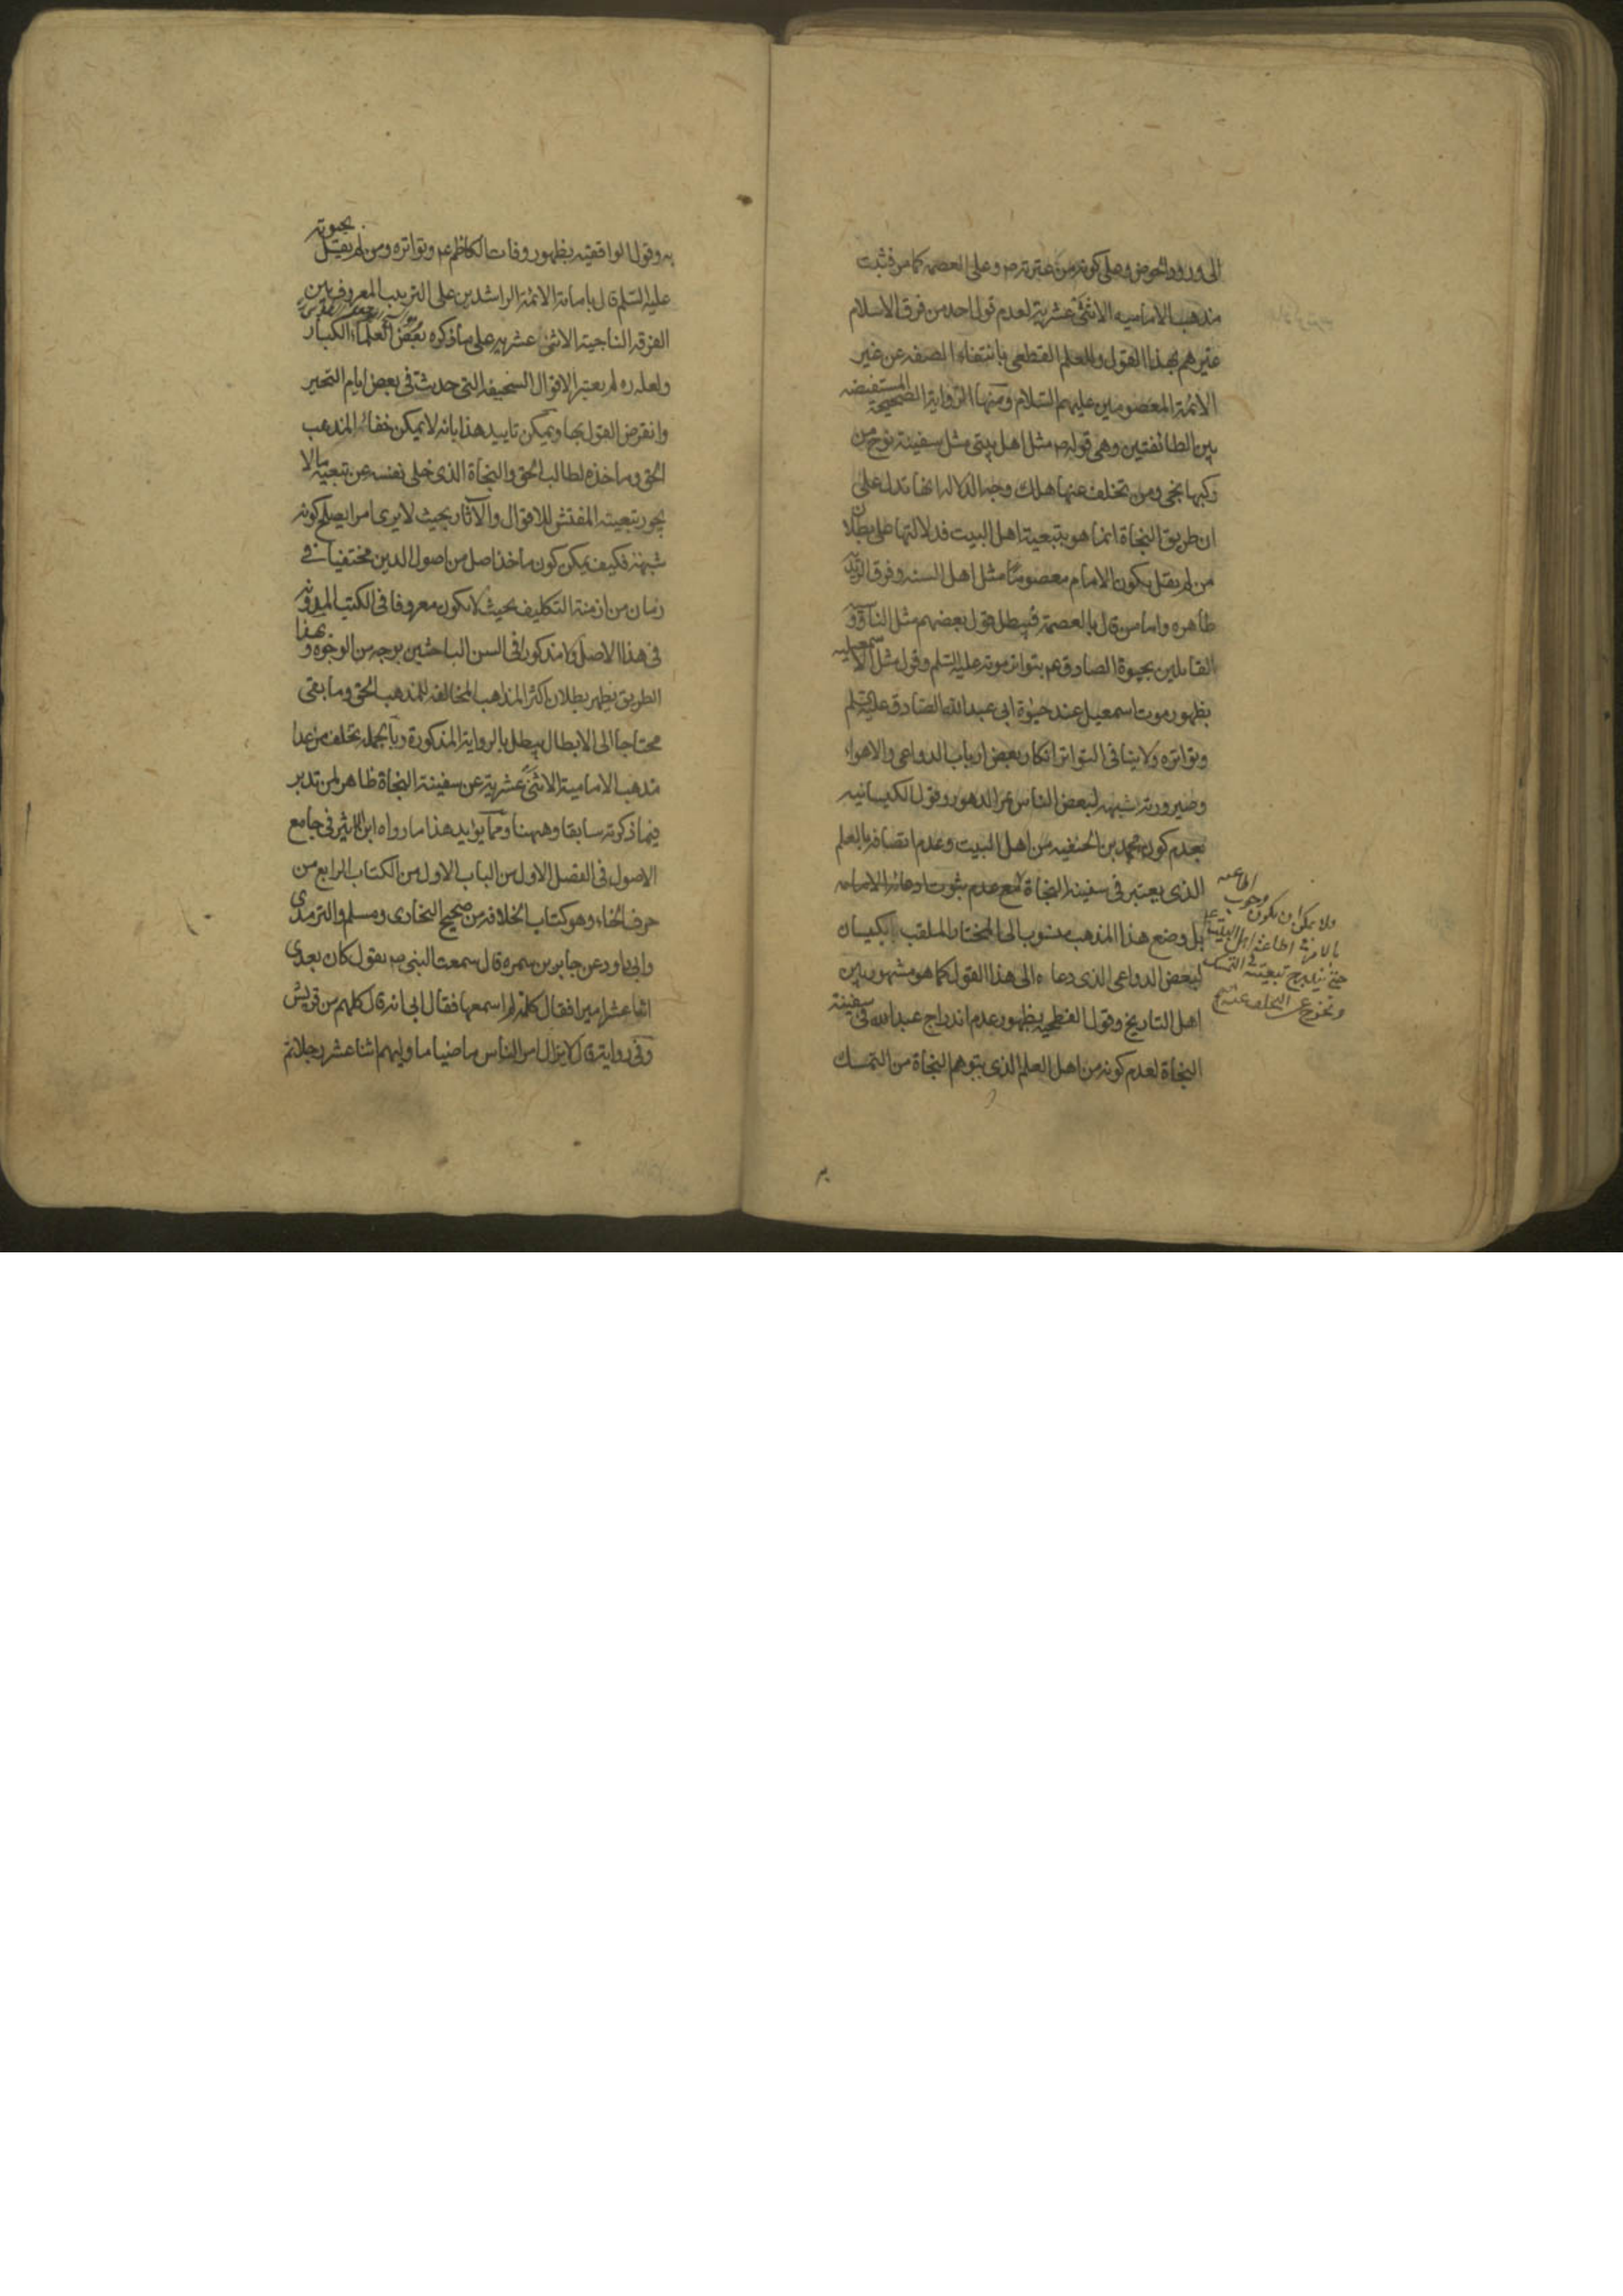 الى ورود الحوض وعلى كونه من عترته ص وعلى العصمة كما مر فثبت
مذهب الامامية الاثنى عشرية لعدم قول احد من فرق الاسلام
غيرهم بهذا القول وللعلم القطعى بانتفاء الصفه عن غير
الائمة المعصومين عليهم السلام ومنها الرواية المستفيضه الصحيحة
بين الطائفتين وهى قوله ص مثل اهل بيتى مثل سفينة نوح من
ركبها نجى ومن تخلف عنها هلك وجه الدلالة انها تدل على
ان طريق النجاة انما هو بتبعية اهل البيت فدلالتها على بطلان
من لم يقل بكون الامام معصوما مثل اهل السنه وفرق الزيدية
ظاهره واما من قال بالعصمة فيبطل قول بعضهم مثل الناووسية
القايلين بحيوة الصادق عم بتواتر موته عليه السلم وقول مثل الاسمعيليه
بظهور موت اسمعيل عند حيوة ابى عبد الله الصادق عليه السلم
وتواتره ولا ينافى التواتر انكار بعض ارباب الدواعى والاهواء
وصيرورته شبهه لبعض الناس بمر الدهور وقول الكيسانيه
بعدم كون محمد بن الحنفيه من اهل البيت وعدم اتصافه بالعلم
الذى يعتبر فى سفينة النجاة مع عدم ثبوت ادعائه الامامه
بل وضع هذا المذهب منسوب الى المختار الملقب بكيسان
لبعض الدواعى الذى دعاه الى هذا القول كما هو مشهور بين
اهل التاريخ وقول الفطحيه بظهور عدم اندراج عبد الله فى سفينة
النجاة لعدم كونه من اهل العلم الذى يتوهم النجاة من التمسك
ولا يمكن ان يكون وجوب اطاعته
بالامر فى اطاعة اهل البيت
حتى يندرج تبعيته فى التمسك
ويخرج عن التخلف عنهم
به
به وقول الواقفيه بظهور وفات الكاظم عم وتواتره ومن لم يقل بحيوته
عليه السلم قال بامامة الائمة الراشدين على الترتيب المعروف بين
الفرقه الناجية الاثنى عشريه على ما ذكره بعض العلماء الكبار
ولعله ره لم يعتبر الاقوال السخيفه التى حدثت فى بعض ايام التحير
وانقرض القول بها ويمكن تاييد هذا بانه لا يمكن خفاء المذهب
الحق وماخذه لطالب الحق والنجاة الذى خلى نفسه عن تبعية مالا
يجوز تبعيته المفتش للاقوال والآثار بحيث لا يرى امرا يصلح كونه
شبهة فكيف يمكن كون ماخذ اصل من اصول الدين مختفيا فى
زمان من ازمنة التكليف بحيث لا يكون معروفا فى الكتب المدونه
فى هذا الاصل ولا مذكورا فى السن الباحثين بوجه من الوجوه وبهذا
الطريق يظهر بطلان اكثر المذاهب المخالفه للمذهب الحق وما بقى
محتاجا الى الابطال يبطل بالرواية المذكورة وبالجمله تخلف من عدا
مذهب الامامية الاثنى عشرية عن سفينة النجاة ظاهر لمن تدبر
فيما ذكرته سابقا وههنا ومما يؤيد هذا ما رواه ابن الاثير فى جامع
الاصول فى الفصل الاول من الباب الاول من الكتاب الرابع من
حرف الخاء وهو كتاب الخلافه من صحيح البخارى ومسلم والترمذى
وابى داود عن جابر بن سمره قال سمعت النبى ص يقول كان بعدى
اثنا عشر اميرا فقال كلمة لم اسمعها فقال ابى انه قال كلهم من قريش
وفى رواية قال لا يزال امر الناس ماضيا ما وليهم اثنا عشر رجلا ثم